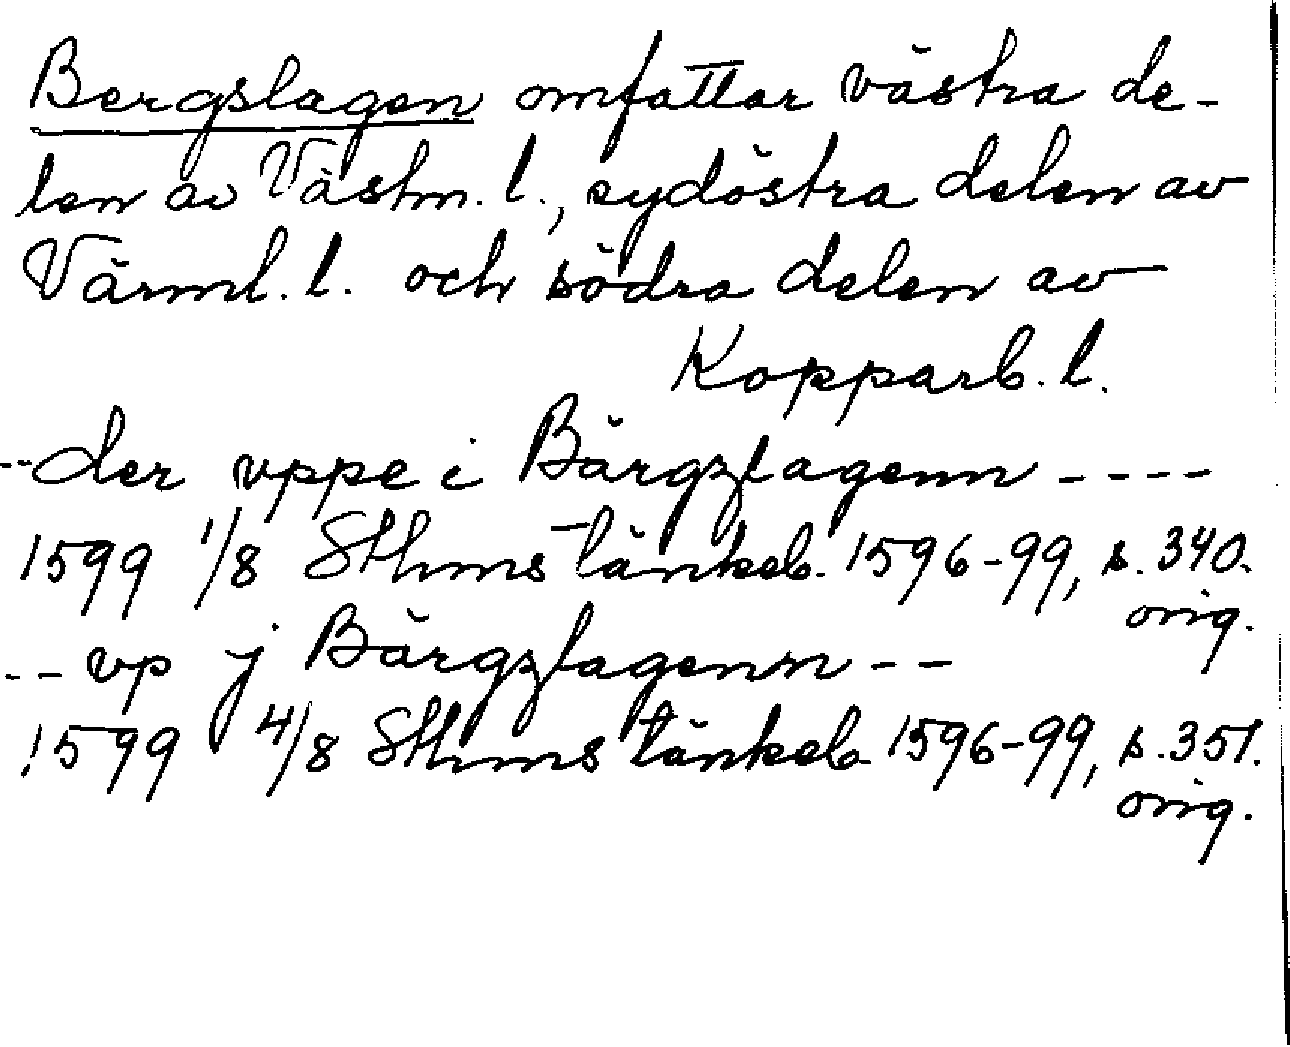 Bergslagen omfattar västra de-
len av Västm. l., sydöstra delen av
Värml. l. och södra delen av
Kopparb. l.
--der vppe i Bärgzlagenn ----
1599 1/8 Sthms tänkeb. 1596-99, s. 340.
orig.
-- vp j Bärgzlagenn --
1599 4/8 Sthms tänkeb. 1596-99, s. 351.
orig.